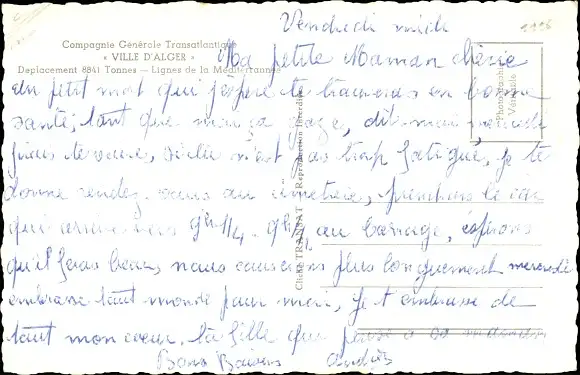 Vendredi midi
Compagnie Générale Transatlantique
« VILLE D'ALGER »
Deplacement 8841 Tonnes — Lignes de la Méditerranée
Photographie Véritable
Cliché TRANSAT — Reproduction Interdite
Ma petite Maman chérie
un petit mot que j'espère te trouveras en bonne
santé, tant que moi ça gaze, dit-moi
si elle n'est pas trop fatigué, je te
donne rendez-vous au cimetière, prendrais le car
qui arrive vers 9h 1/4, 9h1/2 au barrage, espérons
qu'il feras beau, nous causerons plus longuement mercredi
embrasse tout monde pour moi, je t'embrasse de
tout mon cœur. ta fille que pense a sa maman
Bons Baisers